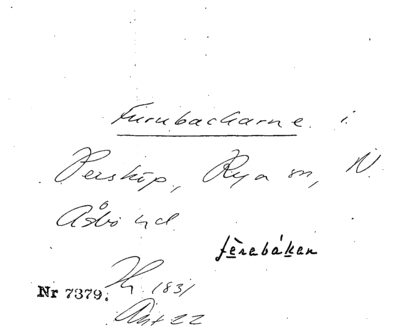 Furubackarne i
Perstöp, Rya sn, N.
Åsbo hd
fèrebákan
Nr 7379. Hy 1831
Akt 22